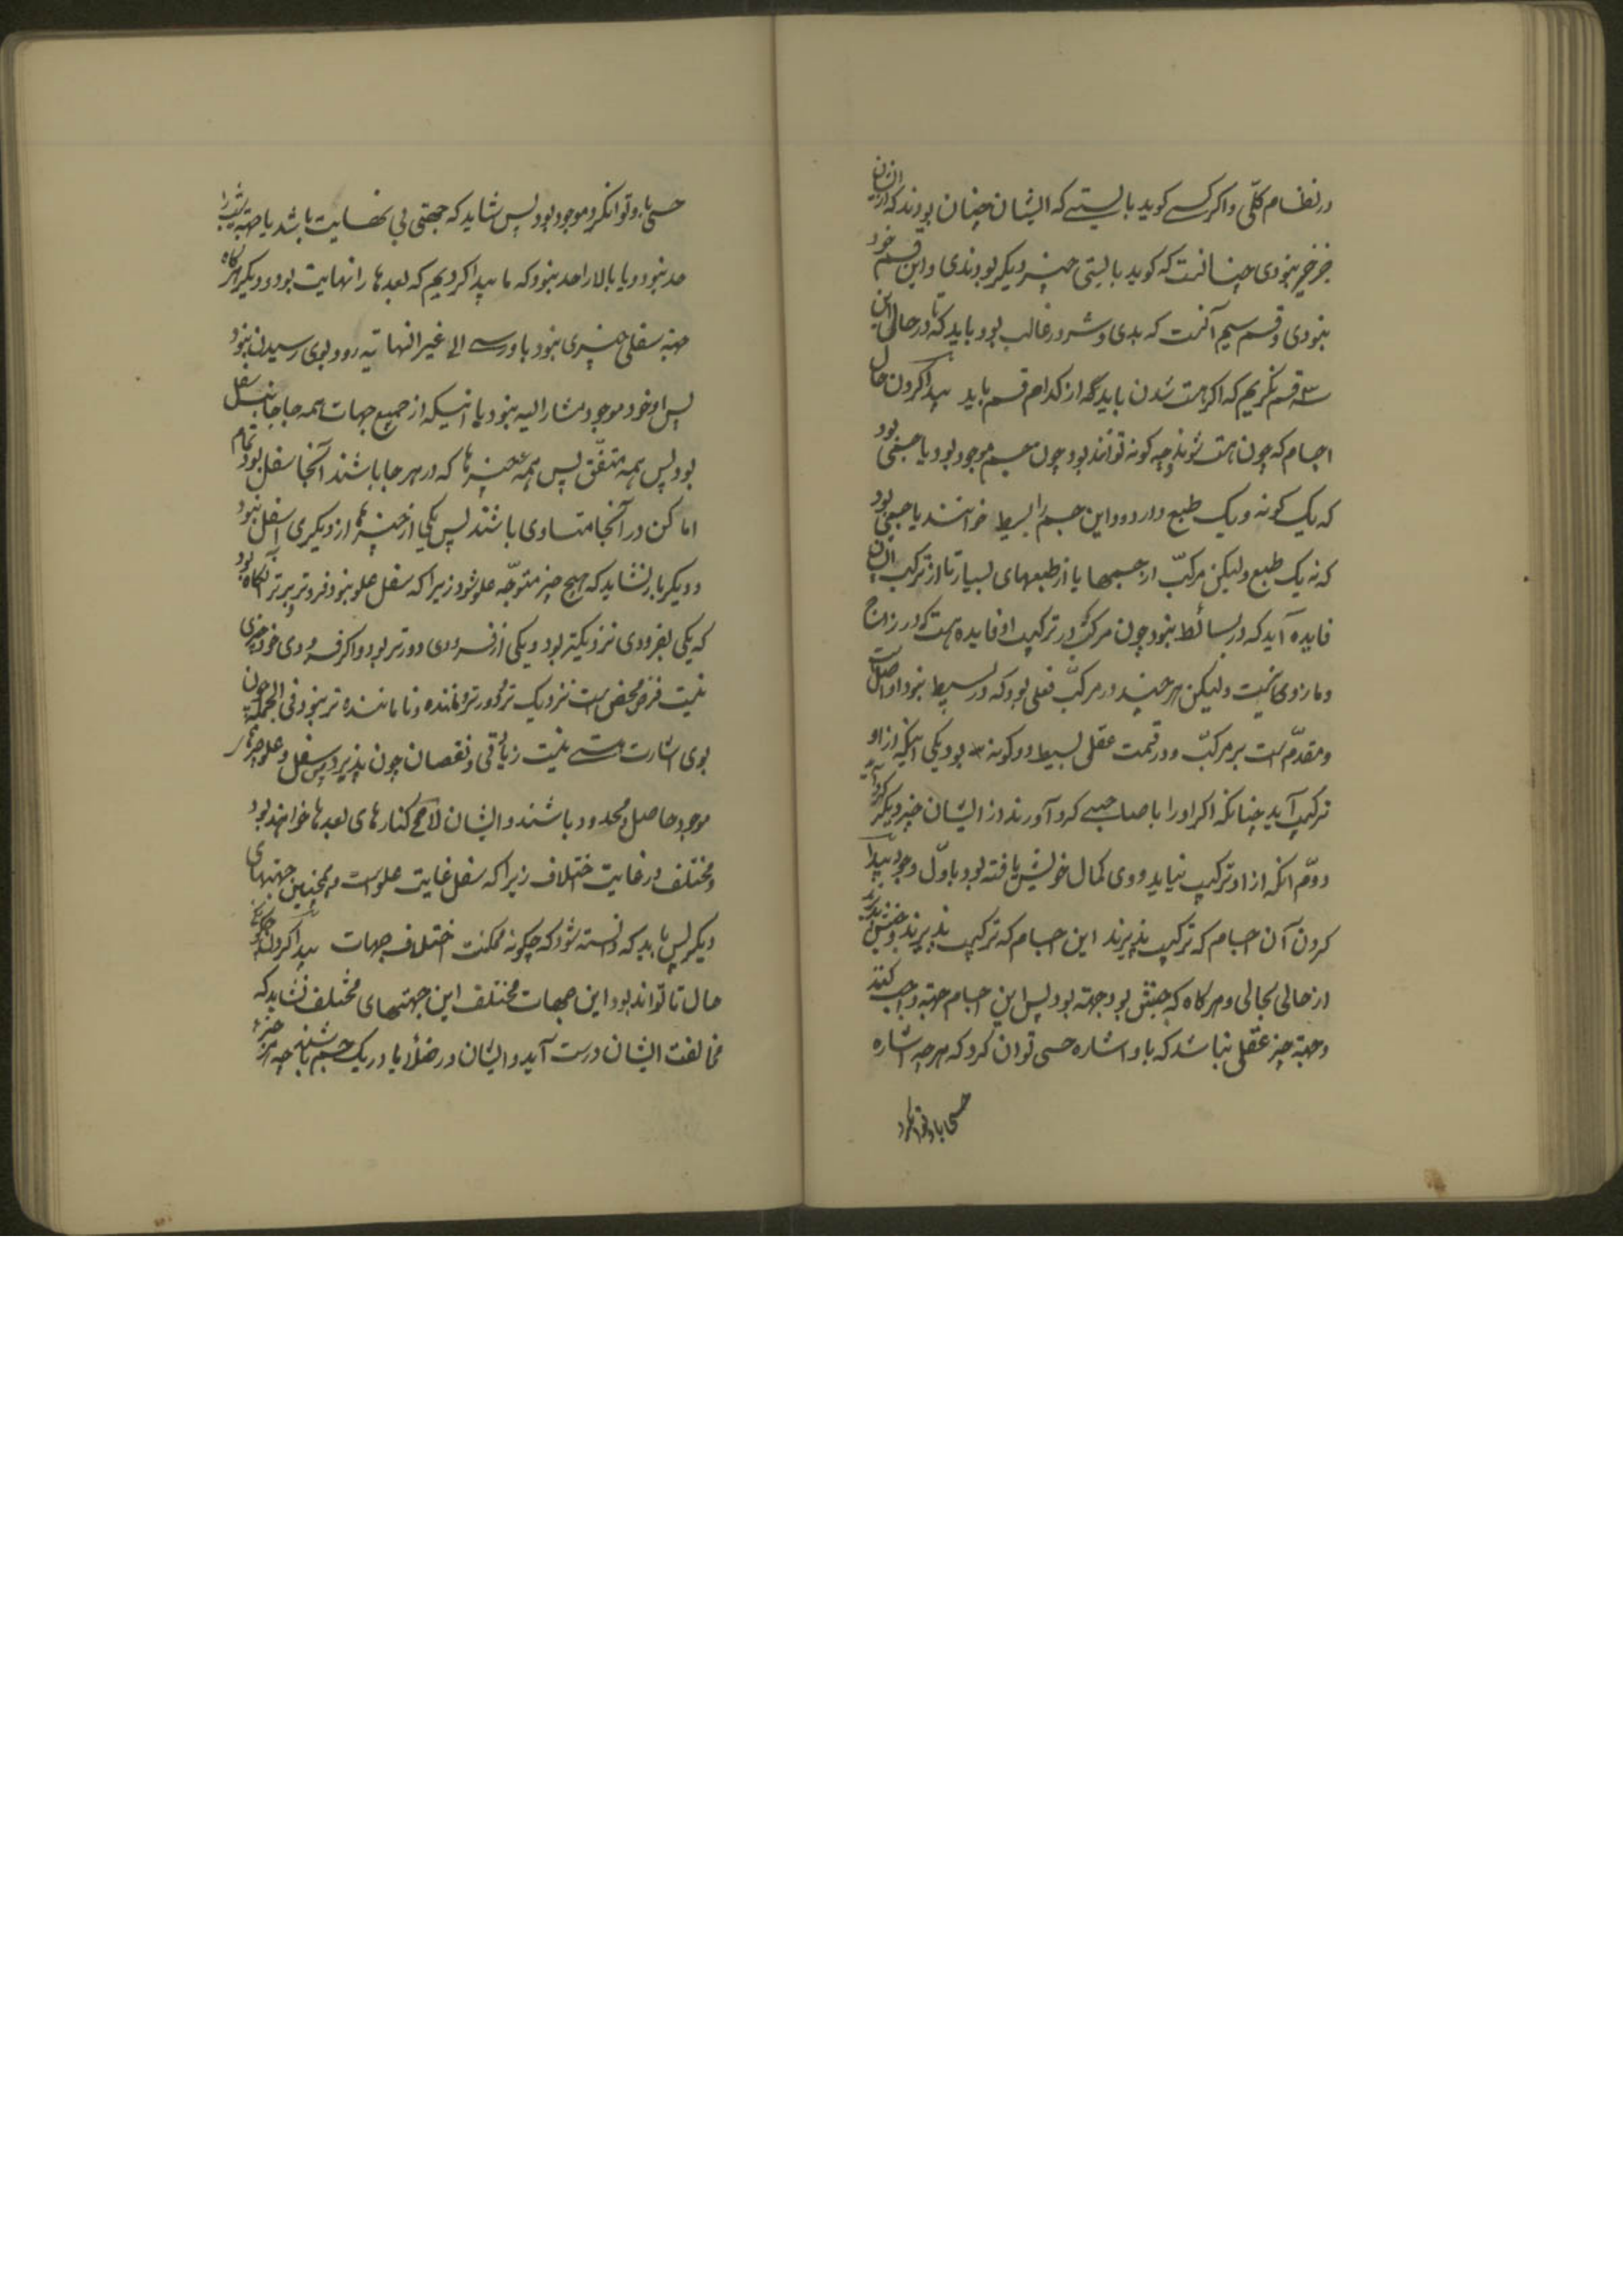 در نظام کلّی و اگر کسے کوید بایستے که ایشان چنان بودند که از ایشان
جز خیر نبودی چنانست که کوید بایستی چیز دیگر بودندی و این قسم خود
نبودی و قسم سیم آنست که بدی و شر در غالب بود باید که تا در حال این
سه قسم نگریم که اگر هست شدن باید که از کدام قسم باید پیدا کردن حال
اجسام که چون هست شوند و چه کونه توانند بود چون جسم موجود بود یا جسمی بود
که یک کونه و یک طبع دارد و این جسم را بسیط خوانند یا جسمی بود
که نه یک طبع ولیکن مرکبّ از جسمها یا از طبعهای بسیار تا از ترکیب ایشان
فایده آید که در بسائط نبود چون مرکّب در ترکیب او فایده هست که در زاج
و مازوی نیست ولیکن هر چند در مرکبّ فعلی بود که در بسیط نبود او اصل است
و مقدّم است بر مرکبّ و در قسمت عقلی بسیط دو کونه بود یکی اینکه از او
ترکیب آید چنانکه اگر او را با صاحبے کرد آورند از ایشان چیز دیگر
دوّم انکه از او ترکیب نیاید و وی کمال خویش یافته بود باوّل وجود پیدا
کردن آن اجسام که ترکیب پذیرند این اجسام که ترکیب پذیرند جنبش پذیرند
از حالی بحالی و هر کاه که جنبش بود جهة بود پس این اجسام جهة واجب کنند
و جهة چیز عقلی نباشد که باو اشاره حسی توان کرد که هر چه اشاره
حسی باو نتوان کرد
حسی باو نتوان کرد موجود بود پس نشاید که جهتی بی نهایت باشد یا جهة شیب را
حد نبود و یا بالا را حد نبود که ما پیدا کردیم که بعدها را نهایت بود و دیگر هر کاه
جهة سفلی چیزی نبود باو رسے الی غیر النهایه رود بوی رسیدن نبود
پس او خود موجود مشار الیه نبود یا انیکه از جمیع جهات همه جا جانب سفل
بود پس همه متفّق پس همه چیزها که در هر جا باشند آنجا سفل بود تمام
اماکن در آنجا متساوی باشند پس یکی از چیزها از دیگری اسفل نبود
و دیگر بار نشاید که هیچ چیز متوجّه علو شود زیرا که سفل علو نبود فروتر و برتر آنکاه بود
که یکی بفرودی نزدیکتر بود و یکی از فرودی دورتر بود و اگر فرودی خود چیزی
نیست فرض محض است نزدیک تر و دورتر و ماننده و نا ماننده تر نبود فی الجمله چون
بوی اشارت حسے نیست زیادتی و نقصان چون پذیرد پس سفل و علو چیزهای
موجود حاصل و محدود باشند و ایشان لا محه کنارهای بعدها خواهند بود
و مختلف در غایت اختلاف زیرا که سفل غایت علو است و همچنین جهتهای
دیگر پس باید که دانسته شود که چکونه ممکنست اختلاف جهات پیدا کردن
حال تا تواند بود این جهات مختلف این جهتهای مختلف نشاید که
مخالفت ایشان درست آید و ایشان در خلأ یا در یک جسم باشند چه هر